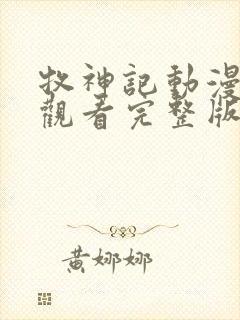 牧神記動漫
觀看完整版
黃娜娜